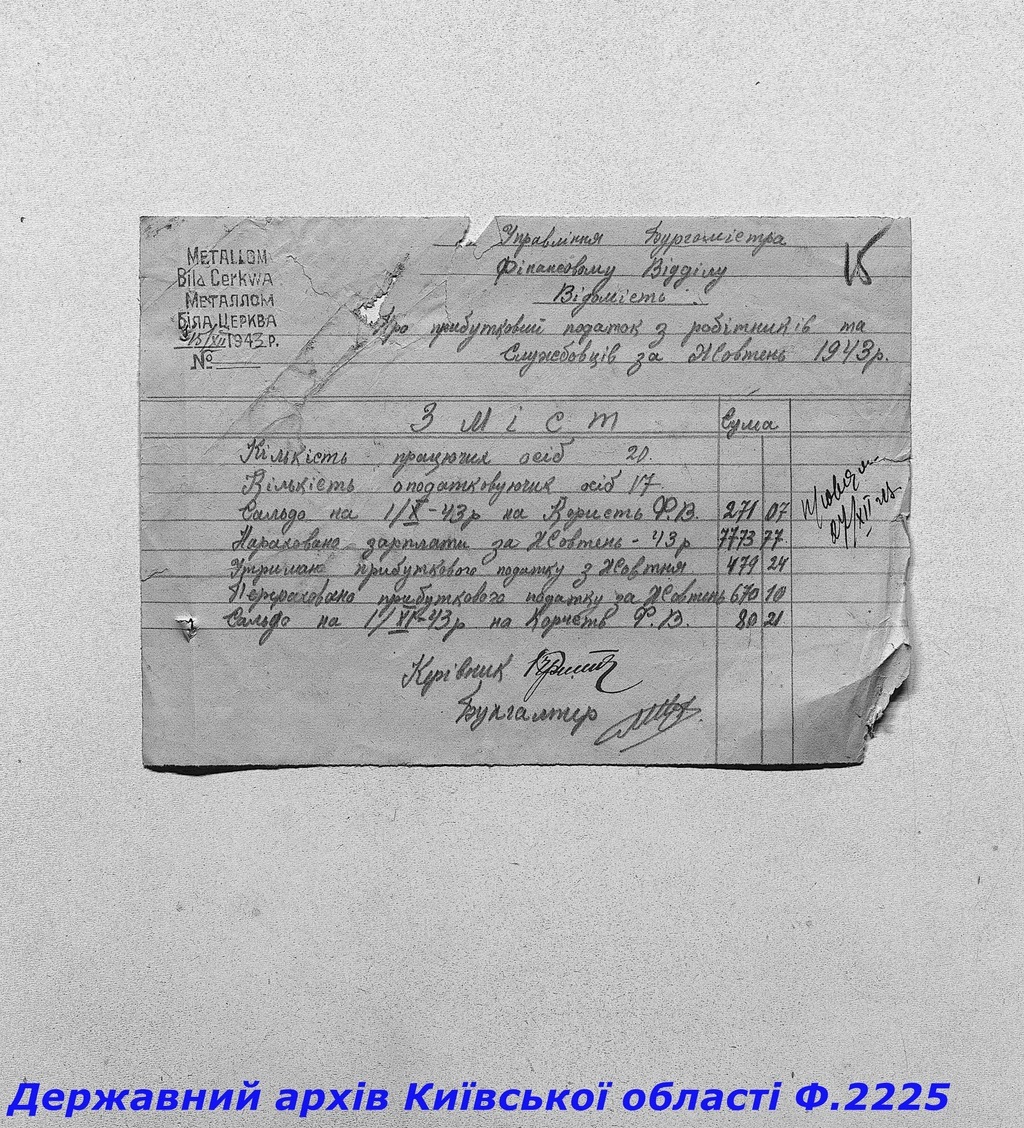 METALLOM
Bila Cerkwa
МЕТАЛЛОМ
БІЛА ЦЕРКВА
15/XII 1943 р.
№
Управління Бургомістра
Фінансовому Відділу
Відомість
15
Про прибутковий податок з робітників та
Службовців за Жовтень 1943 р.
Зміст Сума
Кількість працючих осіб 20
Кількість оподатковуючих осіб 17
Сальдо на 1/X-43 р на Користь Ф.В. 271 07
Нараховано зарплати за Жовтень - 43 р 7773 77
Утримано прибуткового податку з Жовтня 479 24
Перераховано прибуткового податку за Жовтень 670 10
Сальдо на 1/XI-43 р на Користь Ф.В. 80 21
24/XII
Керівник
Бухгалтер
Державний архів Київської області Ф.2225